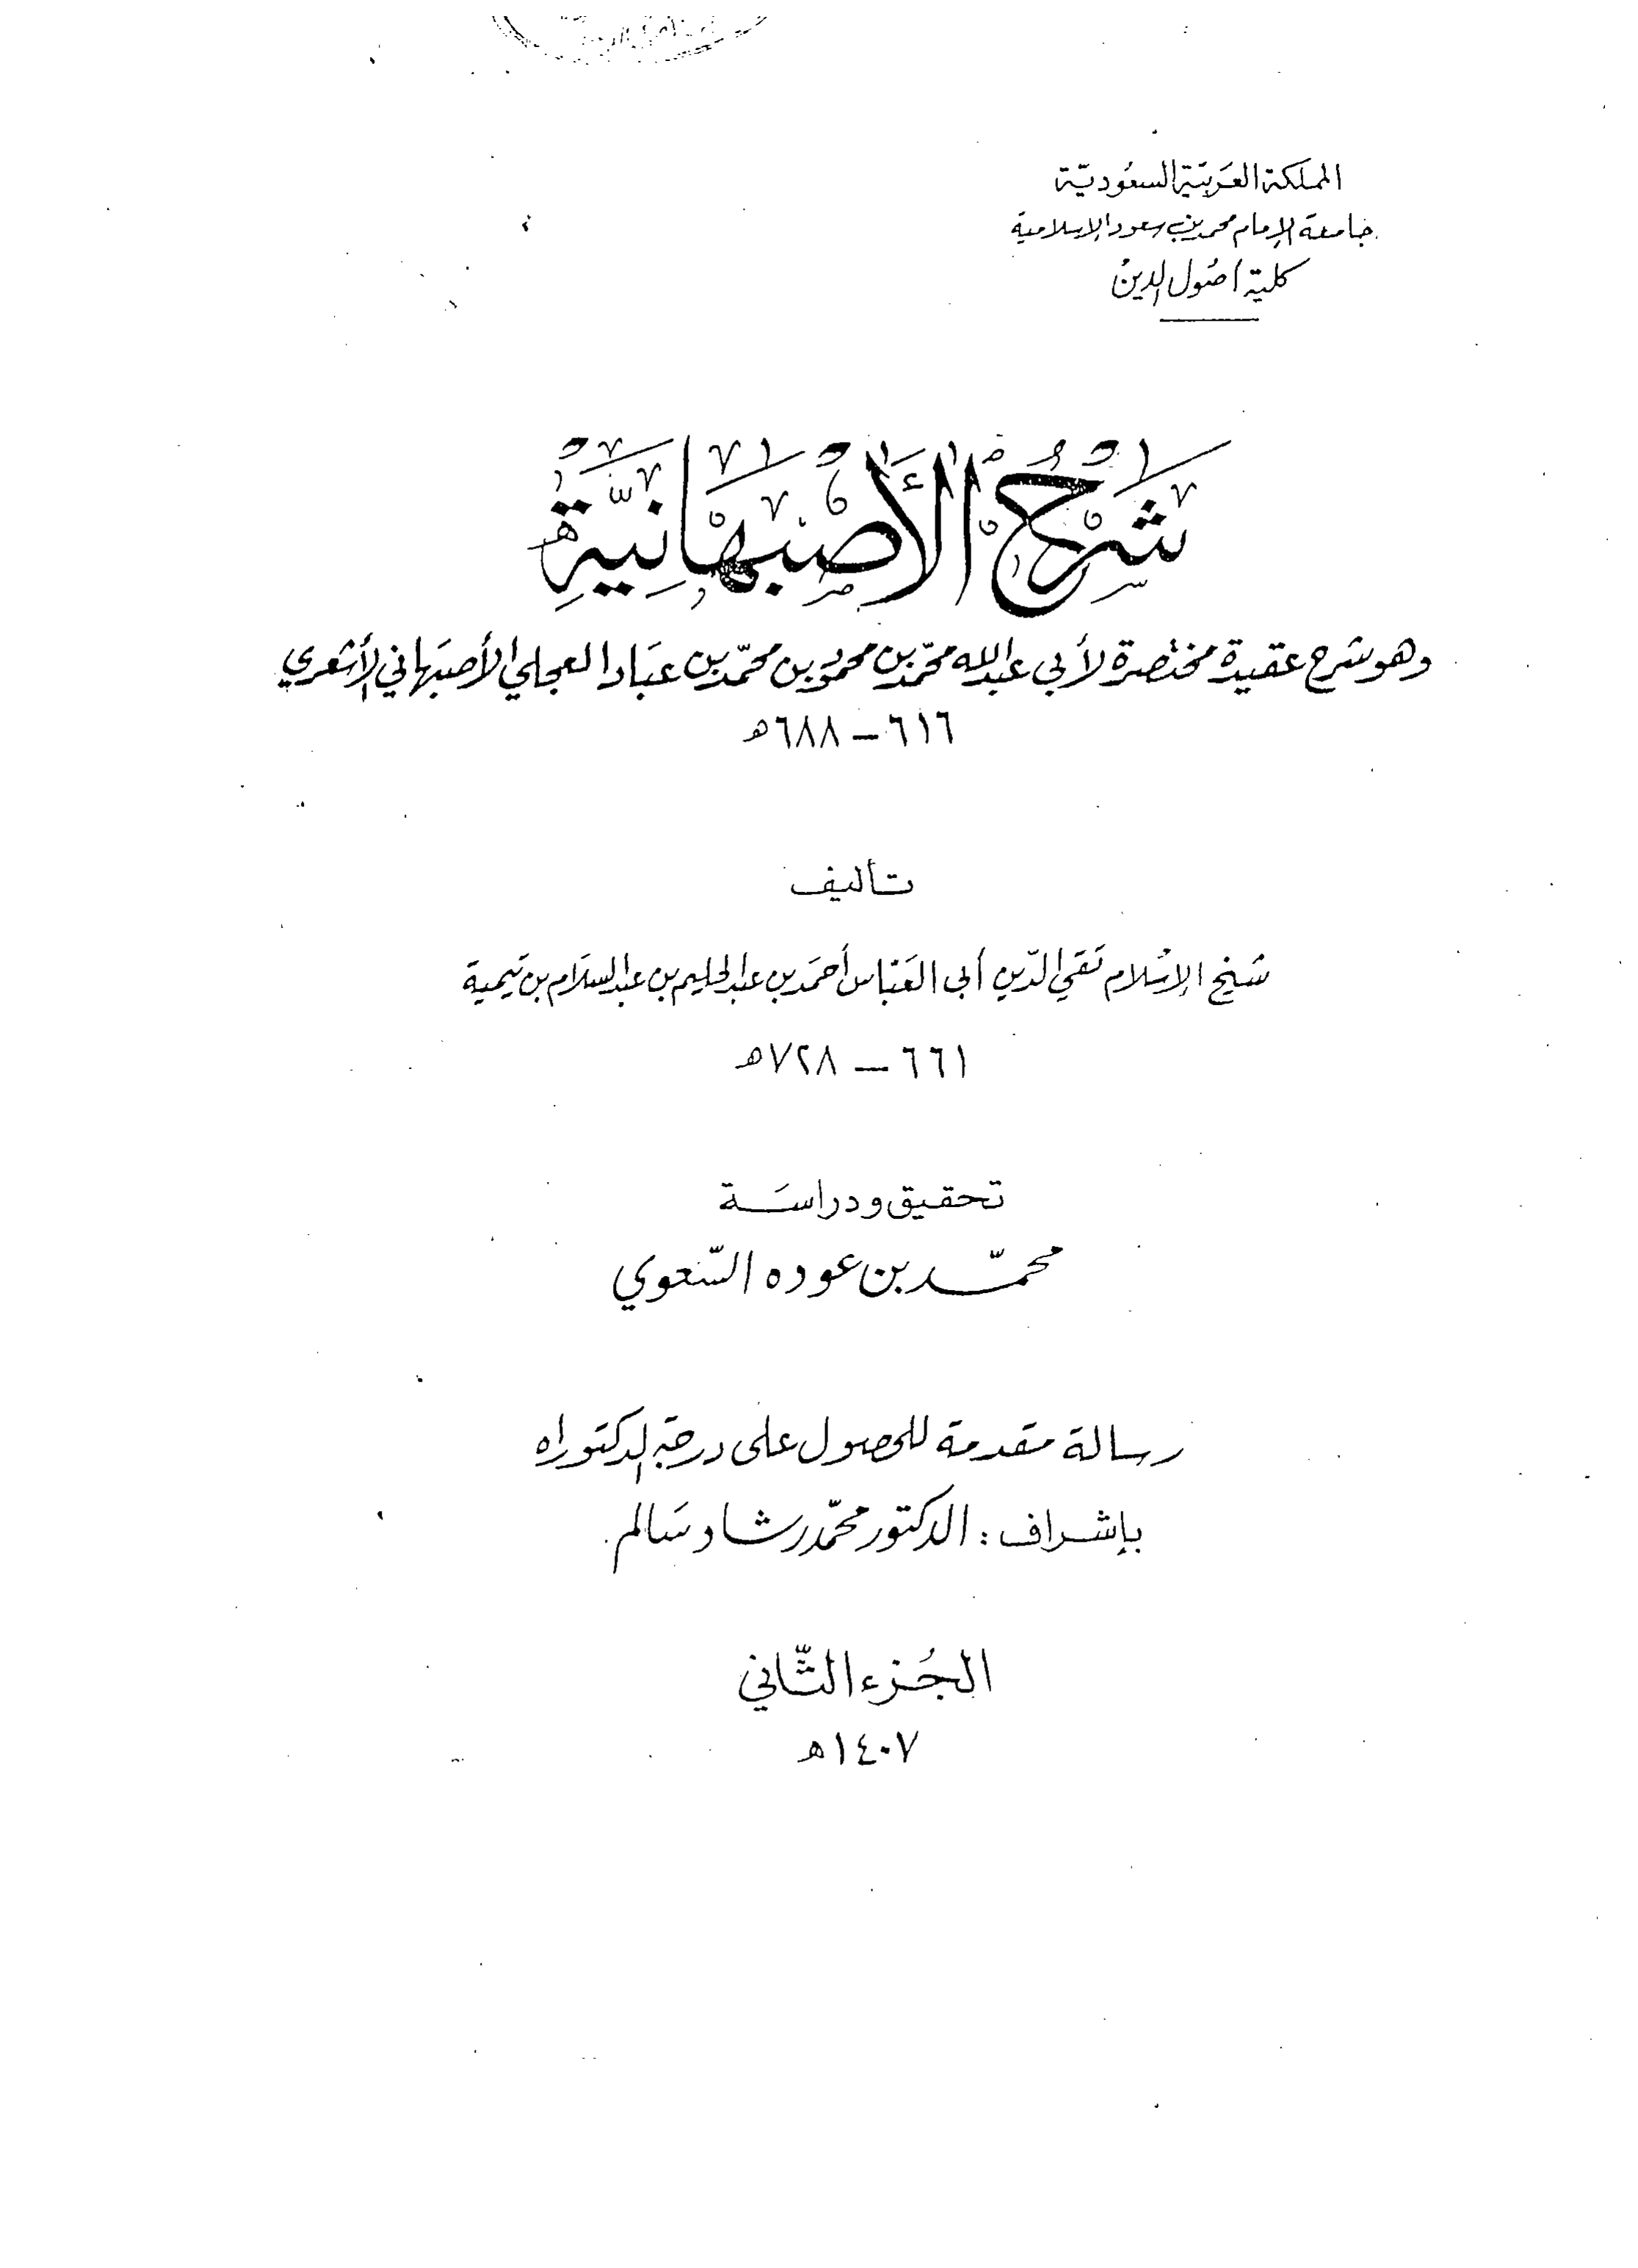 المملكة العَربيّة السعُوديّة
جامعة الإمام محمد بن سعود الإسلامية
كلية أصُول الدين
شَرْحُ الأَصْبَهَانِيَّةِ
وهو شرح عقيدة مختصرة لأبي عبدالله محمّد بن محمود بن محمّد بن عبَاد العجلي الأصبَهاني الأشعري
٦١٦ – ٦٨٨ هـ
تأليف
شيخ الإسْلام تَقي الدّين أبي العَبّاس أحمَد بن عبد الحليم بن عبد السَلام بن تَيمية
٦٦١ – ٧٢٨ هـ
تحقيق ودراسَة
محمّد بن عوده السّعوي
رسالة مقدمة للحصول على درجة الدكتوراه
بإشراف : الدكتور محمّد رشاد سَالم
الجُزء الثّاني
١٤٠٧ هـ